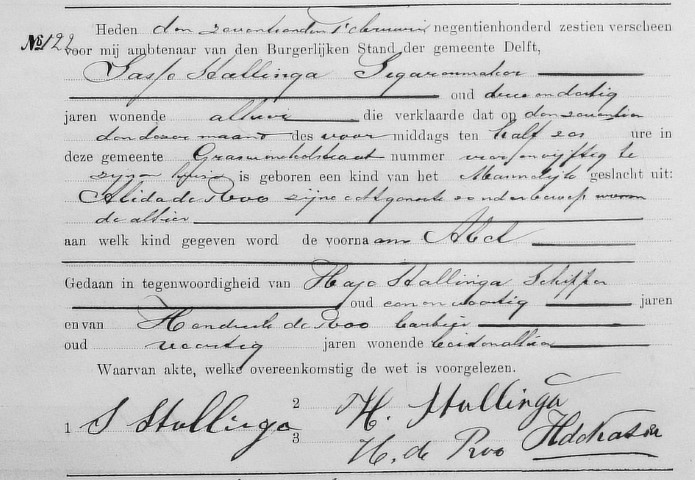 Heden den zeventienden Februari negentienhonderd zestien verscheen
No 122 voor mij ambtenaar van den Burgerlijken Stand der gemeente Delft,
Stallinga Sigarenmaker
oud drie en dertig
jaren wonende alhier die verklaarde dat op den zeventien
den dezer maand des voor middags ten half zes ure in
deze gemeente nummer vier en vijftig te
zijnen huize is geboren een kind van het Mannelijk geslacht uit:
Alida de Roo zijne echtgenoote zonder beroep wonen
de alhier
aan welk kind gegeven word de voornaam Abel
Gedaan in tegenwoordigheid van Hajo Stallinga Schipper
oud een en veertig jaren
en van Hendrik de Roo barbier
oud veertig jaren wonende beiden alhier
Waarvan akte, welke overeenkomstig de wet is voorgelezen.
1 S Stallinga 2 H. Stallinga
3 H. de Roo